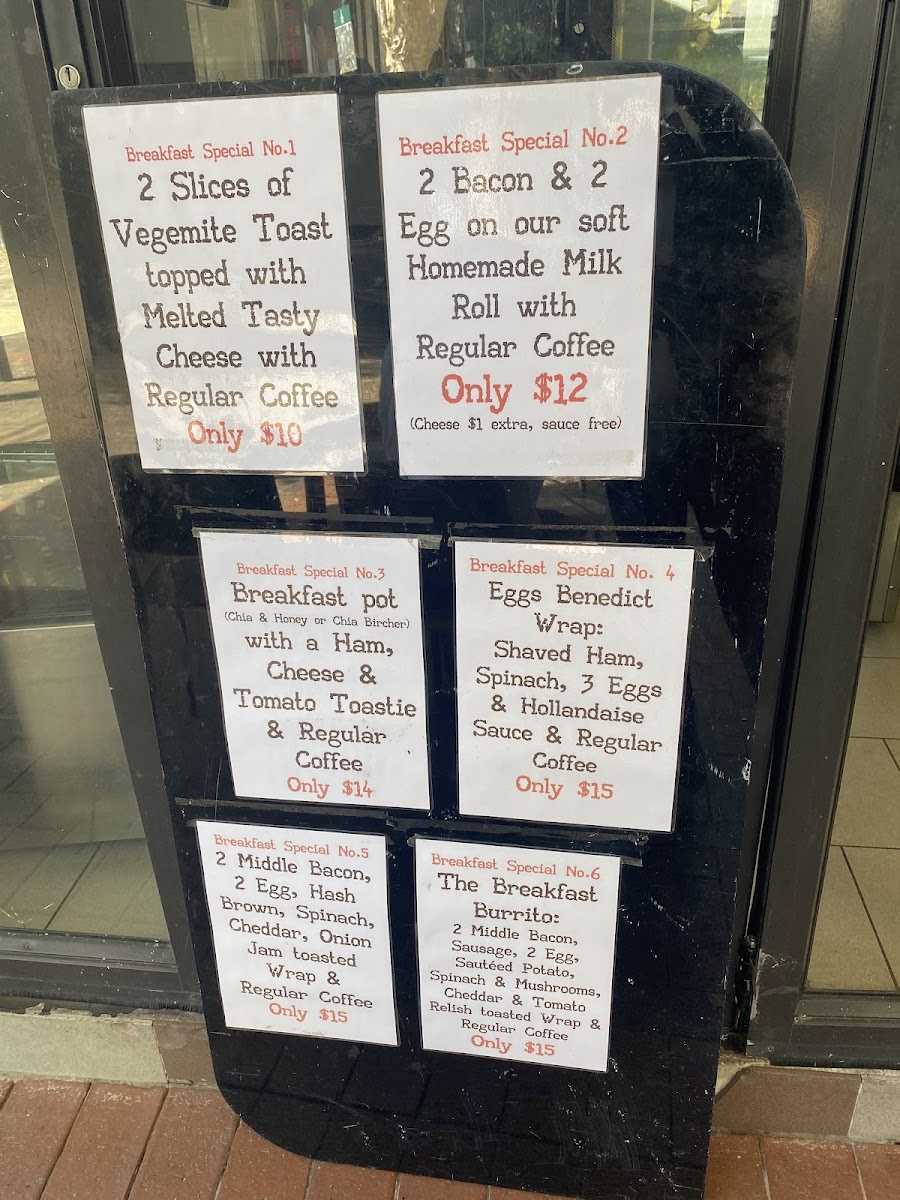 Breakfast Special No.1
2 Slices of
Vegemite Toast
topped with
Melted Tasty
Cheese with
Regular Coffee
Only $10
Breakfast Special No.2
2 Bacon & 2
Egg on our soft
Homemade Milk
Roll with
Regular Coffee
Only $12
(Cheese $1 extra, sauce free)
Breakfast Special No.3
Breakfast pot
(Chia & Honey or Chia Bircher)
with a Ham,
Cheese &
Tomato Toastie
& Regular
Coffee
Only $14
Breakfast Special No. 4
Eggs Benedict
Wrap:
Shaved Ham,
Spinach, 3 Eggs
& Hollandaise
Sauce & Regular
Coffee
Only $15
Breakfast Special No.5
2 Middle Bacon,
2 Egg, Hash
Brown, Spinach,
Cheddar, Onion
Jam toasted
Wrap &
Regular Coffee
Only $15
Breakfast Special No.6
The Breakfast
Burrito:
2 Middle Bacon,
Sausage, 2 Egg,
Sautéed Potato,
Spinach & Mushrooms,
Cheddar & Tomato
Relish toasted Wrap &
Regular Coffee
Only $15